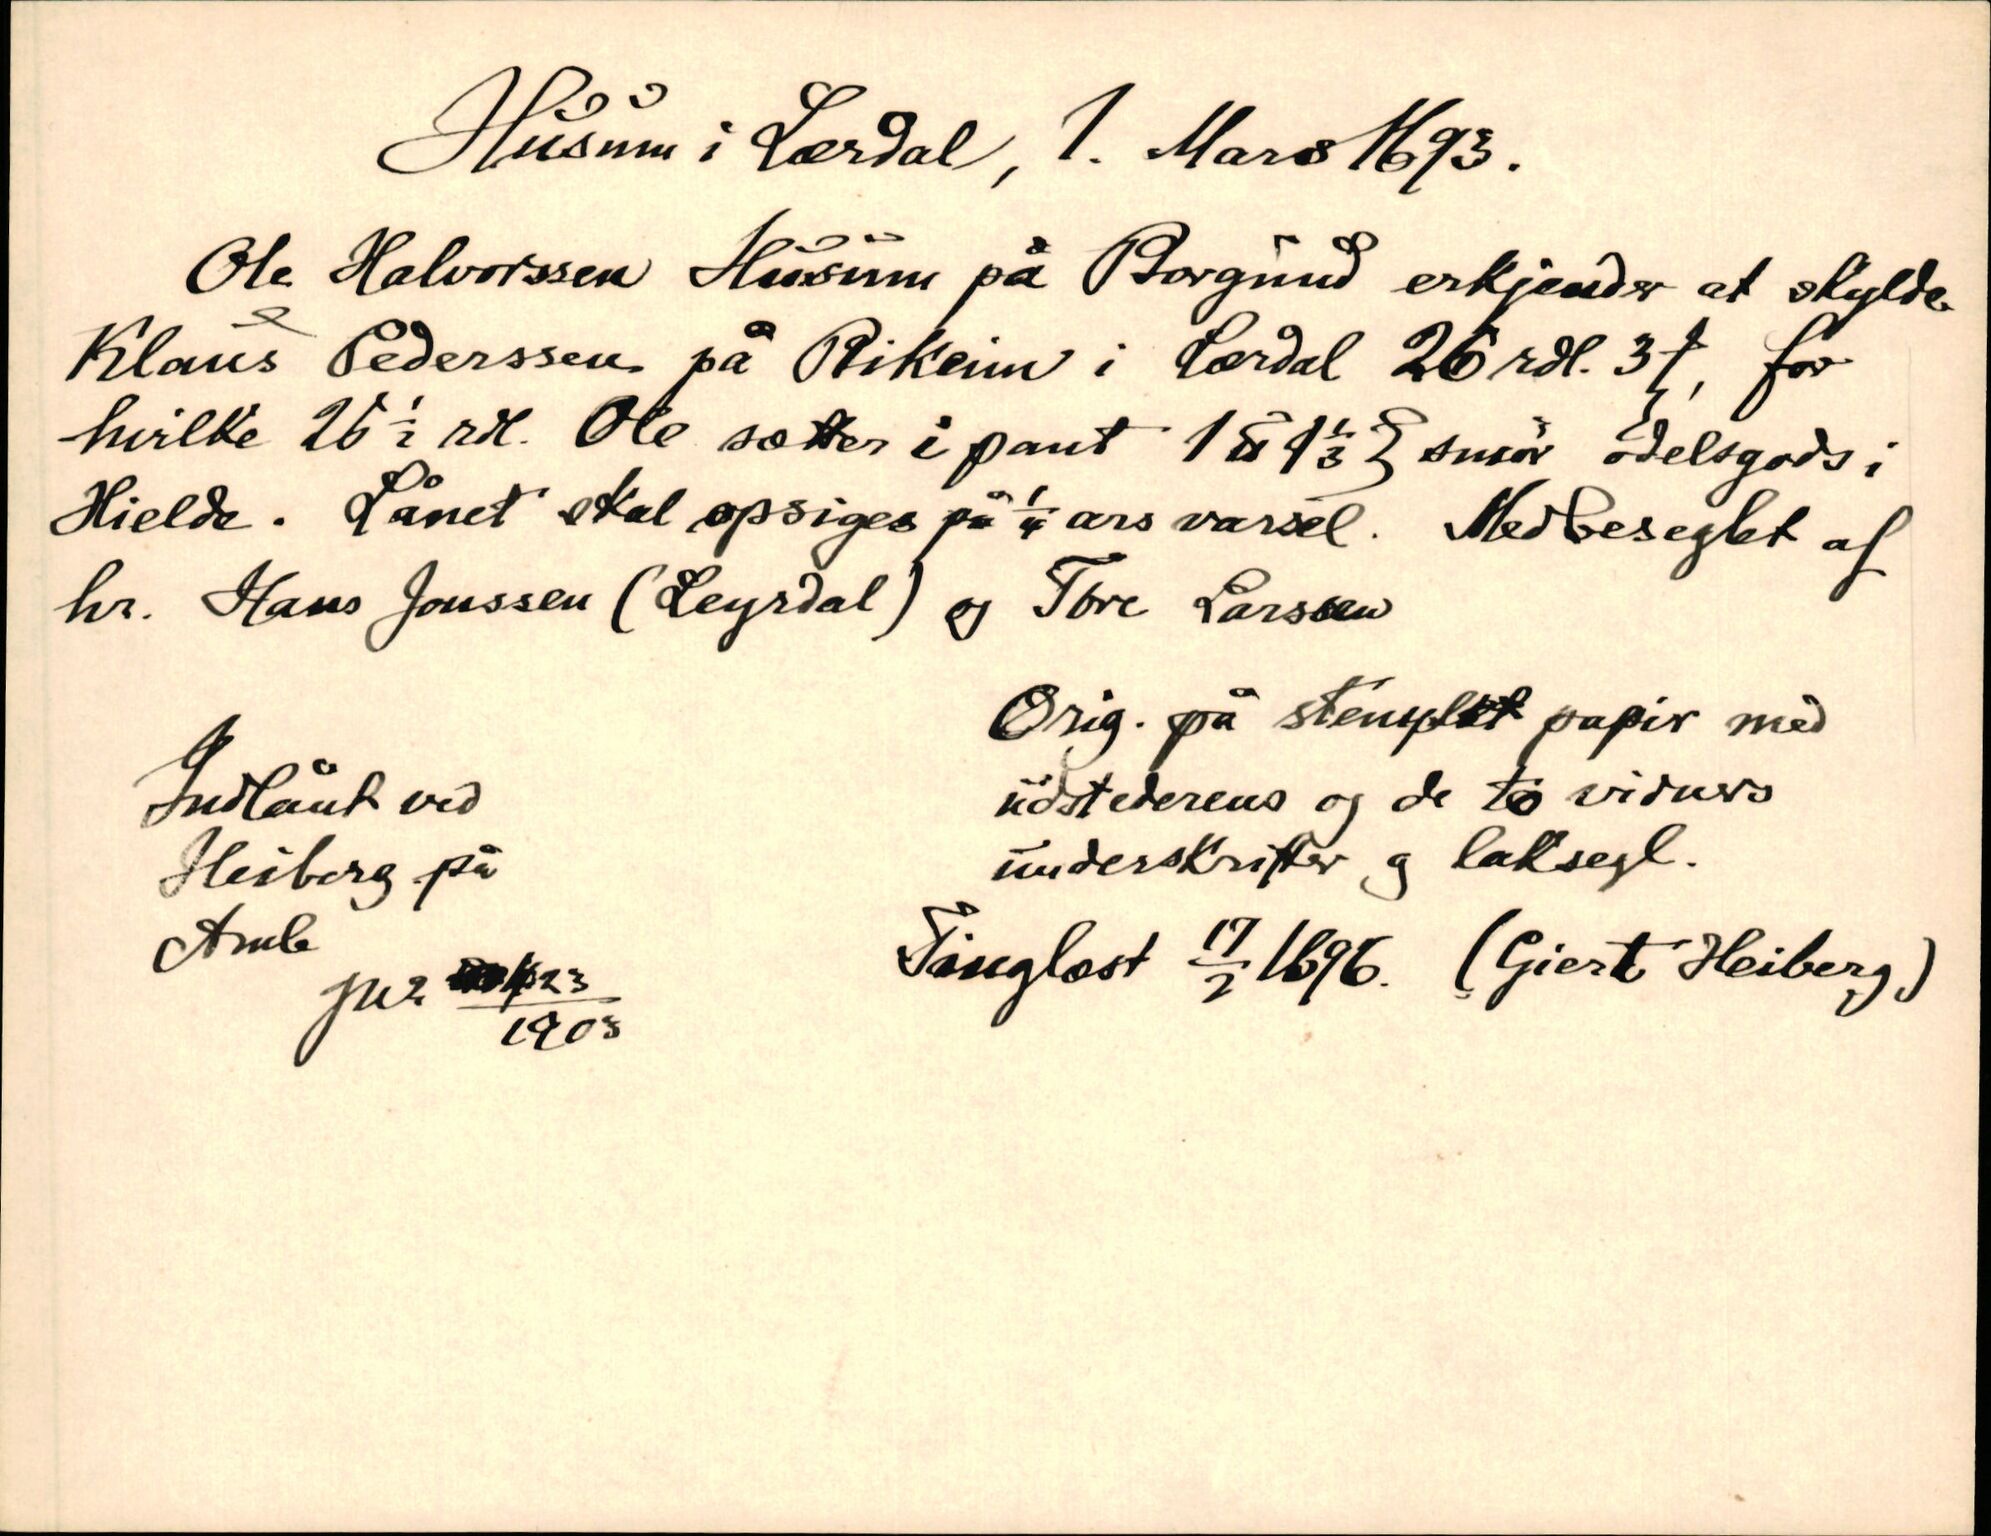 Husum i Lærdal, 1. Mars 1693.
Ole Halvorssen Husum på Borgund erkjender at skylde
Klaus Pederssen på Rikeim i Lærdal 26 rdl. 3 ₰, for
hvilke 26 ½ rdl. Ole sætter i pant 1 ℔ 1⅓ smör odelsgods i
Hielde. Lånet skal opsiges på ¼ års varsel. Medbeseglet af
hr. Hans Jonssen (Leyrdal) og Tore Larssen
Orig. på stemplet papir med
udstederens og de to vidners
underskrifter og laksegl.
Tinglæst 17/2 1696. (Giert Heiberg)
Indlånt ved
Heiberg på
Amle
23
1903